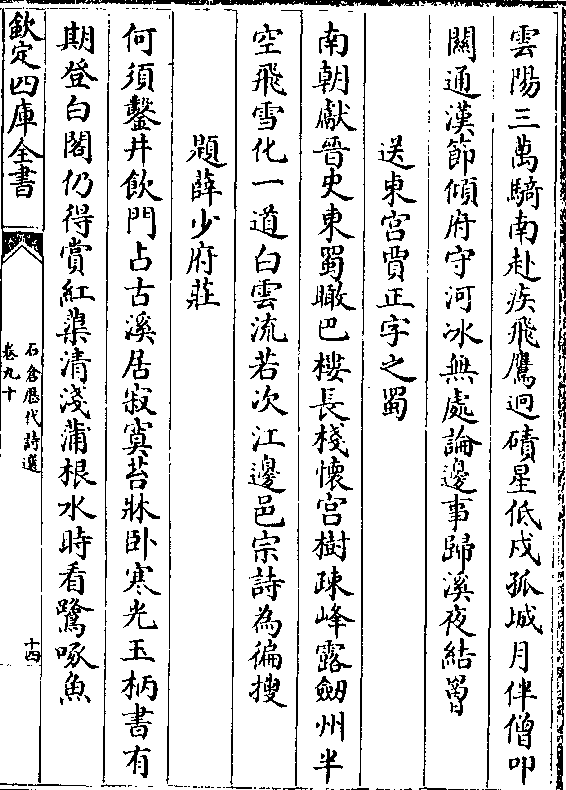 雲陽三萬騎南赴疾飛鷹迥磧星低戍孤城月伴僧叩
關通漢節傾府守河冰無處論邊事歸溪夜結罾
送東宫賈正字之蜀
南朝獻晉史東蜀瞰巴樓長棧懷宫樹疎峰露劒州半
空飛雪化一道白雲流若次江邊邑宗詩為徧搜
題薛少府莊
何須鑿井飲門占古溪居寂寞苔牀卧寒光玉柄書有
期登白閣仍得賞紅蕖清淺蒲根水時看鷺啄魚
欽定四庫全書
石倉歷代詩選
卷九十
十四